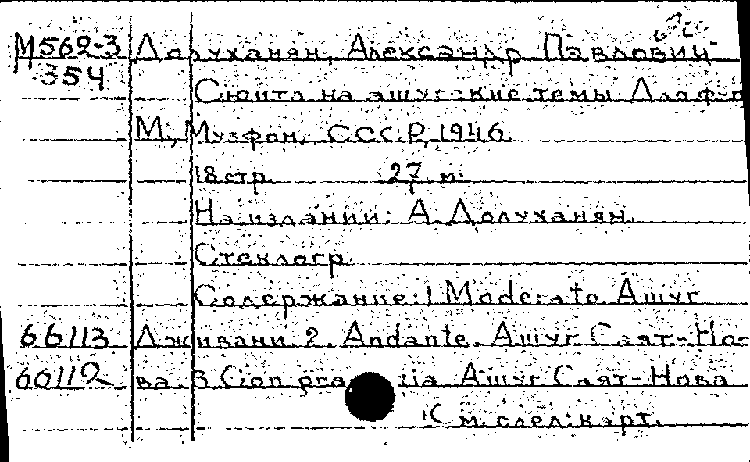 М562-3 Долуханян, Александр Павлович
354 Сюита на ашугские темы Для ф-п
М., Музфон. СССР, 1946.
18 стр. 27 п.
На издании: А. Долуханян.
Стеклогр.
Содержание: 1 Moderato. Ашуг
66113 Дживани 2. Andante. Ашуг Саят-Но-
60112 ва 3 Con Ашуг Саят-Нова
См. след. карт.